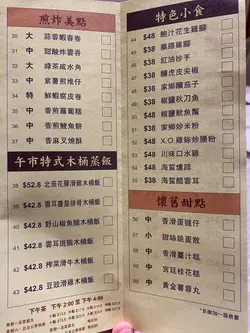 煎炸美點
30 大 蒜蓉蝦春卷
31 中 甜酸炸雲吞
32 大 綠茶咸水角
33 中 紫薯煎堆仔
34 特 鮮蝦腐皮卷
35 中 香煎蘿蔔糕
36 中 香煎鯪魚餅
37 中 香麻叉燒酥
午市特式木桶蒸飯
38 $52.8 北菇花膠滑雞木桶飯
39 $52.8 雲耳臘腸排骨木桶飯
40 $52.8 野山椒魚腩木桶飯
41 $52.8 雲耳斑腩木桶飯
42 $52.8 榨菜滑牛木桶飯
43 $52.8 豆豉滑雞木桶飯
下午茶 下午 2:00 至 下午 4:00
特色小食
44 $48 鮑汁花生雞腳
45 $48 藥膳雞腳
46 $48 紅油抄手
47 $48 醋虎皮尖椒
48 $48 家鄉釀茄子
49 $48 椒鹽秋刀魚
50 $48 椒鹽魷魚鬚
51 $48 家鄉炒米粉
52 $48 X.O.雞絲炒腸粉
53 $48 川味口水雞
54 $48 海蜇燻蹄
55 $56 海蜇醋雲耳
懷舊甜點
56 中 香滑蛋撻仔
57 小 甜絲脆蛋散
58 中 香滑薑汁糕
59 中 宮廷桂花糕
60 中 黃金薯蓉丸
*多謝加一服務費